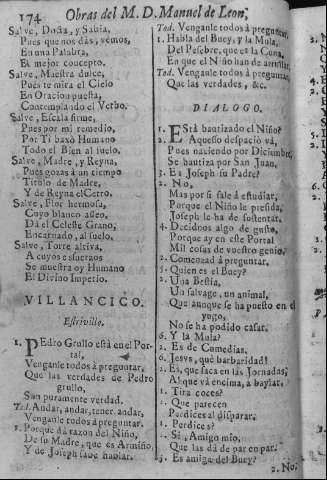 174 Obras del M. D. Manuel de Leon,
Salve, Docta, y Sabia,
Pues que nos dàs, vemos,
En una Palabra,
El mejor concepto.
Salve, Maestra dulce,
Pues te mira el Cielo
En Oracion puesta,
Contemplando el Verbo.
Salve, Escala firme,
Pues por mi remedio,
Por Ti baxò Humano
Todo el Bien al suelo.
Salve, Madre, y Reyna,
Pues gozas à un tiempo
Titulo de Madre,
Y de Reyna el Cerro.
Salve, Flor hermosa,
Cuyo blanco asseo,
Dà el Celeste Grano,
Encarnado, al suelo.
Salve, Torre altiva,
A cuyos esfuerços
Se muestra oy Humano
El Divino Imperio.
VILLANCICO.
Estrivillo.
1. PEdro Grullo està en el Portal,
Venganle todos à preguntar,
Que las verdades de Pedro
grullo,
Son puramente verdad.
Tod. Andar, andar, tener, andar,
Venganle todos à preguntar.
1. Porque dà razon del Niño,
De su Madre, que es Armiño,
Y de Joseph sabe hablar.
Tod. Venganle todos à preguntar.
1. Habla del Buey, y la Mula,
Del Pesebre, que es la Cuna,
En que el Niño han de arrullar.
Tod. Venganle todos à preguntar,
Que las verdades, &c.
DIALOGO.
1. EStà bautizado el Niño?
2. Aquesso despacio và,
Pues naciendo por Diziembre,
Se bautiza por San Juan.
3. Es Joseph su Padre?
2. No,
Mas por si sale à estudiar,
Porque el Niño le presida,
Joseph le ha de sustentar.
4. Decidnos algo de gusto,
Porque ay en este Portal
Mil cosas de vuestro genio.
2. Començad à preguntar.
5. Quien es el Buey?
2. Una Bestia,
Un salvage, un animal,
Que aunque se ha puesto en el
yugo,
No se ha podido casar.
6. Y la Mula?
2. Es de Comedias.
6. Jesvs, què barbaridad!
2. Es, que saca en las Jornadas,
Al que và encima, à baylar.
1. Tira coces?
2. Que parecen
Perdices al disparar.
1. Perdices?
2. Si, Amigo mio,
Que las dà de par en par.
3. Es amiga del Buey?
2. No,